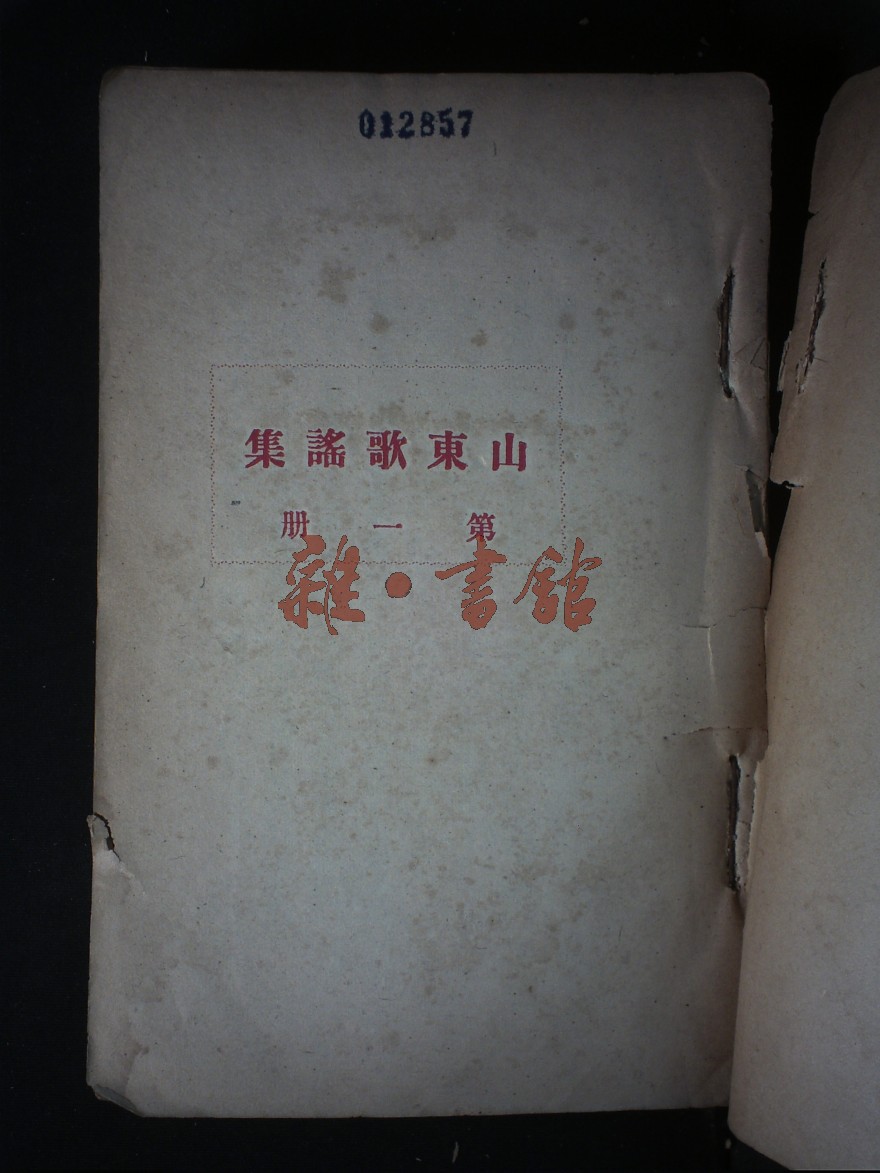 012857
山東歌謠集
第一册
雜·書館